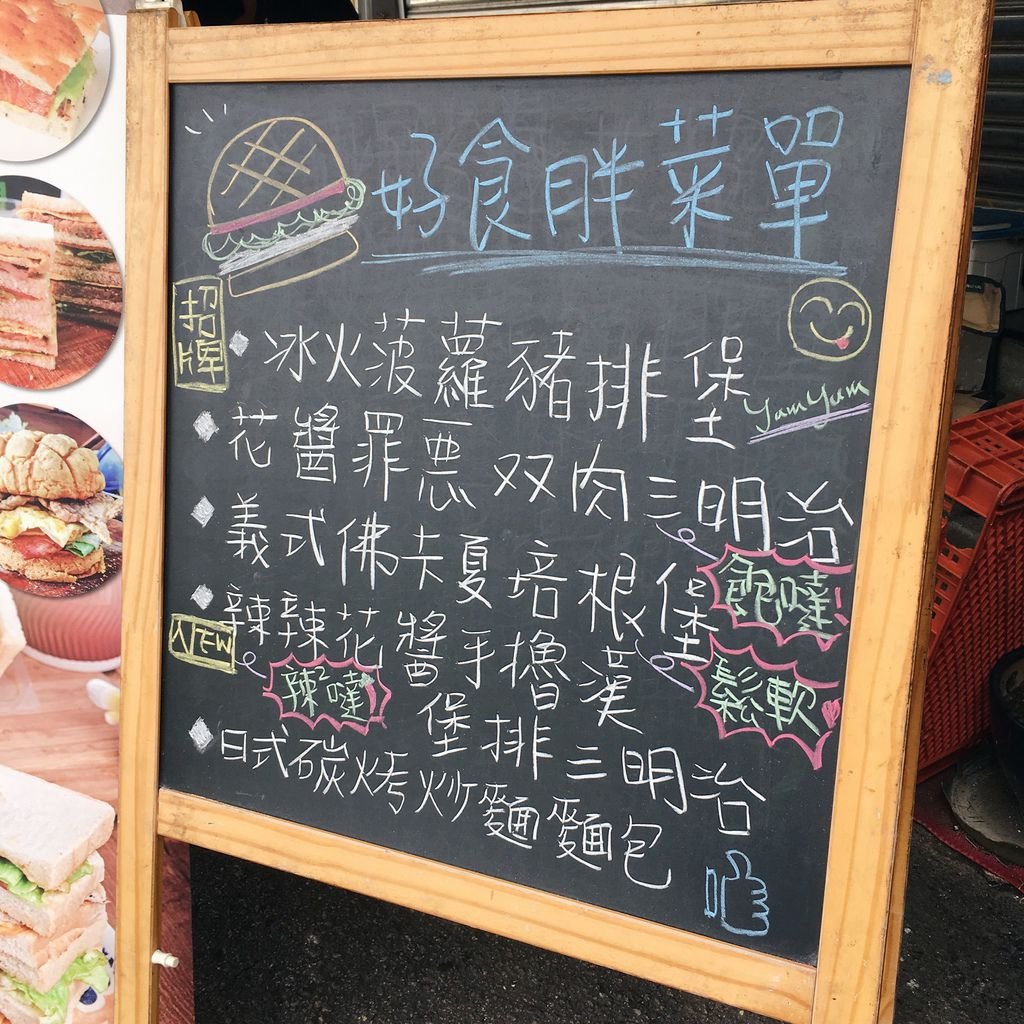 好食胖菜單
招牌
冰火菠蘿豬排堡
Yam Yum
花醬罪惡双肉三明治
飽噠!
義式佛卡夏培根堡
鬆軟
NEW
辣辣花醬手擼漢堡排三明治
辣²噠
日式碳烤炒麵麵包